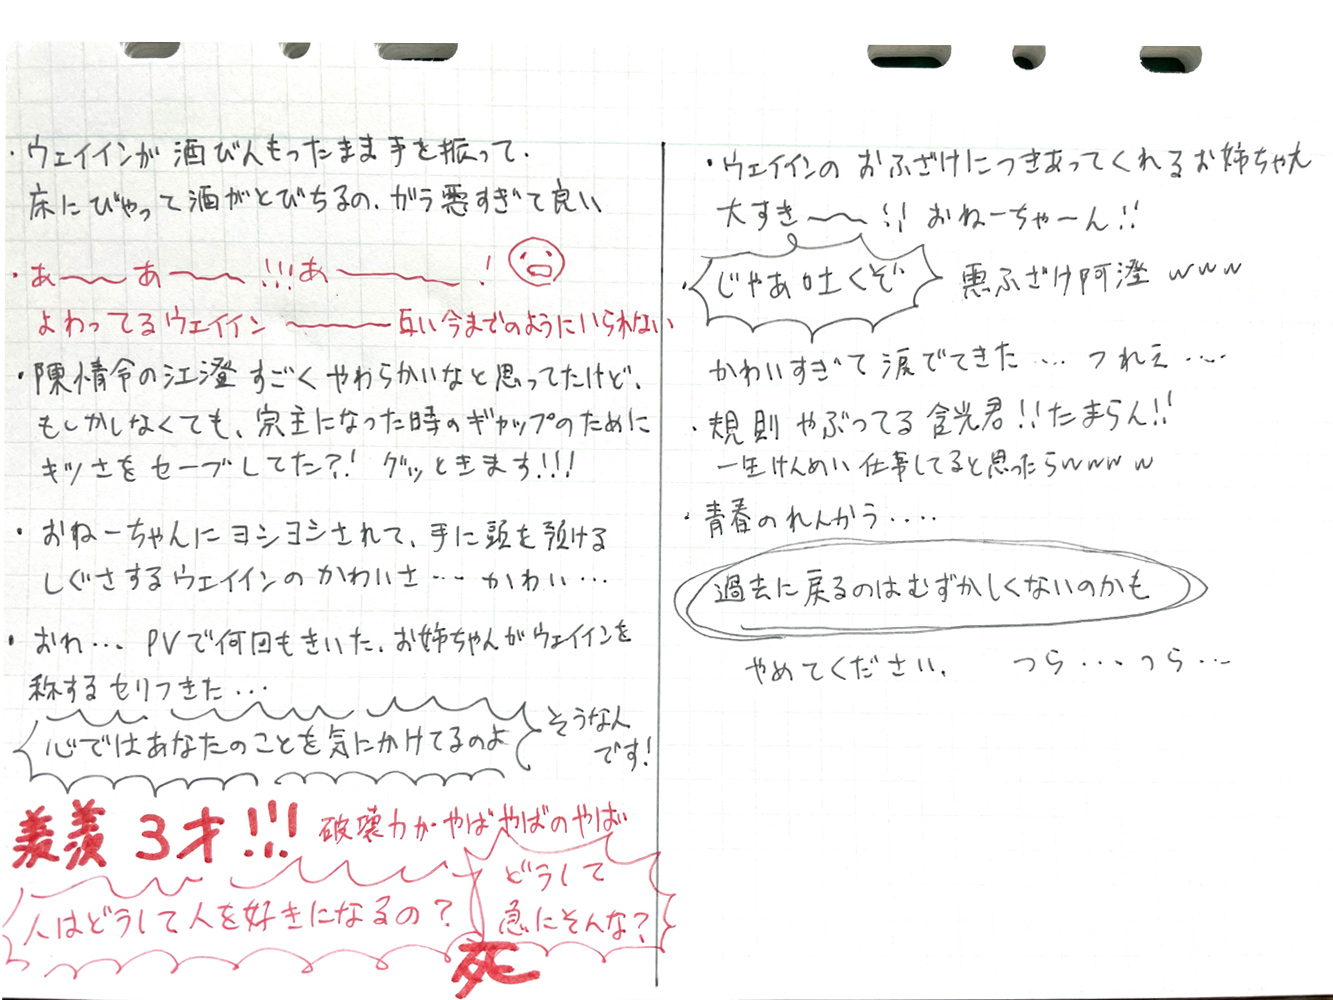 ・ウェイインが酒びんもったまま手を振って、
床にびゃって酒がとびちるの、ガラ悪すぎて良い
・あ〜〜あ〜〜!!!あ〜〜〜!
よわってるウェイイン 〜〜〜互い今までのようにいられない
・陳情令の江澄すごくやわらかいなと思ってたけど、
もしかしなくても、宗主になった時のギャップのために
キツさをセーブしてた?! グッときます!!!
・おねーちゃんにヨシヨシされて、手に頭を預ける
しぐさするウェイインのかわいさ…かわい…
・おれ… PVで何回もきいた、お姉ちゃんがウェイインを
称するセリフきた…
心ではあなたのことを気にかけてるのよ
そうなん
です!
羨羨 3才!!! 破壊力がやばやばのやばい
人はどうして人を好きになるの?
どうして
急にそんな?
死
・ウェイインのおふざけにつきあってくれるお姉ちゃん
大すき〜〜!! おねーちゃーん!!
・じゃあ吐くぞ 悪ふざけ阿澄www
かわいすぎて涙でてきた…. つれぇ….
・規則やぶってる含光君!!たまらん!!
一生けんめい仕事してると思ったらwwww
・青春のれんがう….
過去に戻るのはむずかしくないのかも
やめてください、 つら…つら…